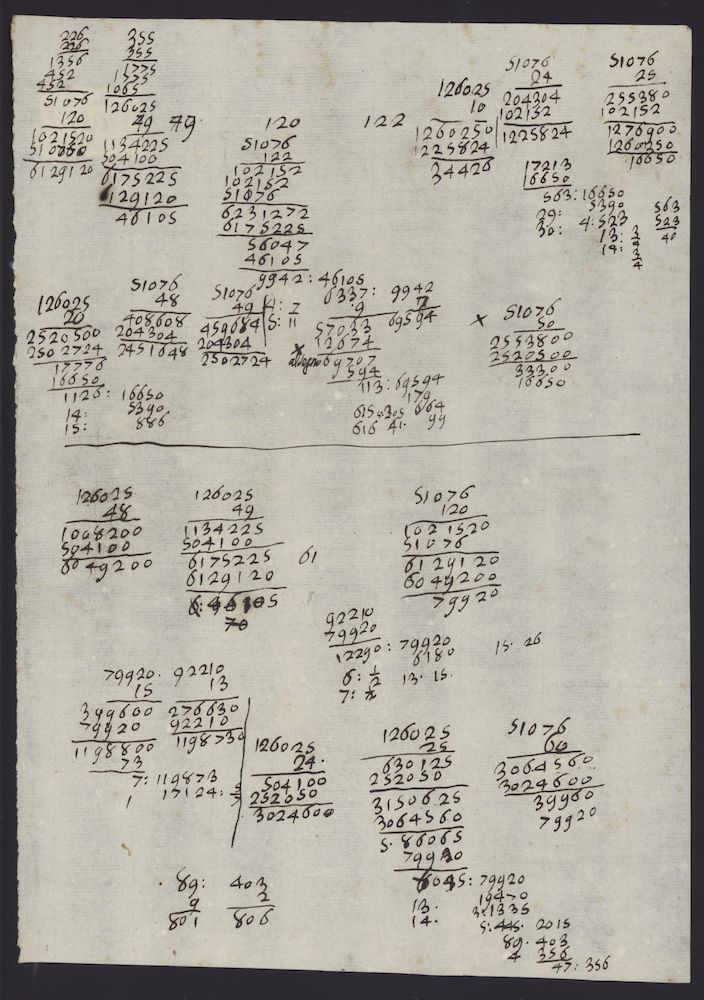 226
226
1356
452
452
51076
120
1021520
51076
6129120
355
355
1775
1775
1065
126025
49 49.
1134225
504100
6175225
6129120
46105
120
51076
122
102152
102152
51076
6231272
6175225
56047
46105
9942: 46105
122
126025
10
1260250
1225824
34426
51076
24
204304
102152
1225824
17213
16650
563: 16650
5390
29: 4: 523
30:
51076
25
255380
102152
1276900
1260250
16650
563
523
40
13: 3/4
14: 3/4
126025
20
2520500
2502724
17776
16650
1126: 16650
14: 5390
15: 886
51076
48
408608
204304
2451648
51076
49
459684
204304
2502724
4: 7
5: 11
6337: 9942
9 7
57033 69594
12674
69707
594
113: 69594
179
615.305 664
616 41. 99
× 51076
50
2553800
2520500
33300
16650
126025
48
1008200
504100
6049200
126025
49
1134225
504100
6175225
6129120
61
51076
120
1021520
51076
6129120
6049200
79920
92210
79920
12290: 79920
6180
6: 1/2 13. 15.
7: 1/2
15. 26
79920. 92210
15 13
399600 276630
79920 92210
1198800 1198730
73
7: 119873
1 17124: 5/7
126025
24.
504100
252050
3024600
126025
25
630125
252050
3150625
3064560
5. 86065
79920
6045: 79920
19470
13. 3:1335
14: 5:445. 2015
89. 403
4 356
47: 356
51076
60
3064560
3024600
39960
79920
89: 403
9 2
801 806